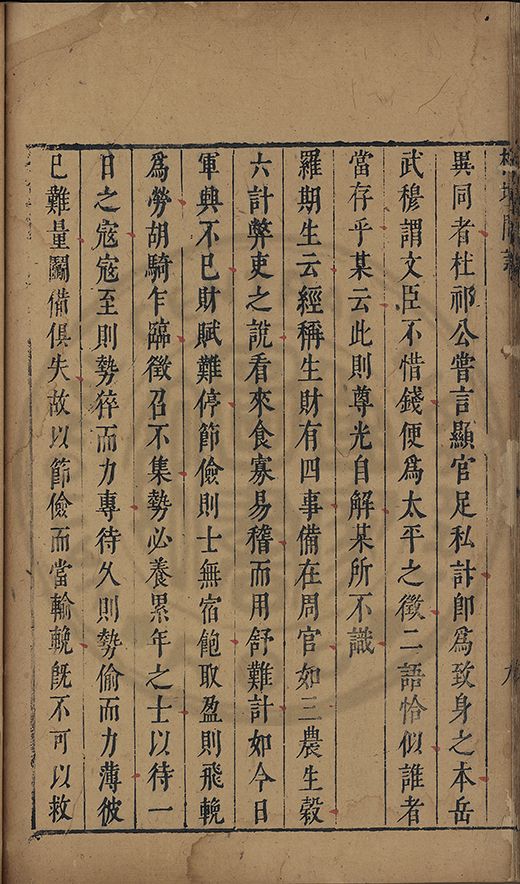 異同者杜祁公嘗言顯官足私計卽爲致身之本岳
武穆謂文臣不惜錢便爲太平之徵二語恰似誰者
當存乎某云此則尊光自解某所不識
羅期生云經稱生財有四事備在周官如三農生穀
六計弊吏之說看來食寡易稽而用舒難計如今日
軍興不已財賦難停節儉則士無宿飽取盈則飛輓
爲勞胡騎乍臨徵召不集勢必養累年之士以待一
日之寇寇至則勢猝而力專待久則勢偷而力薄彼
已難量鬭備俱失故以節儉而當輸輓旣不可以救